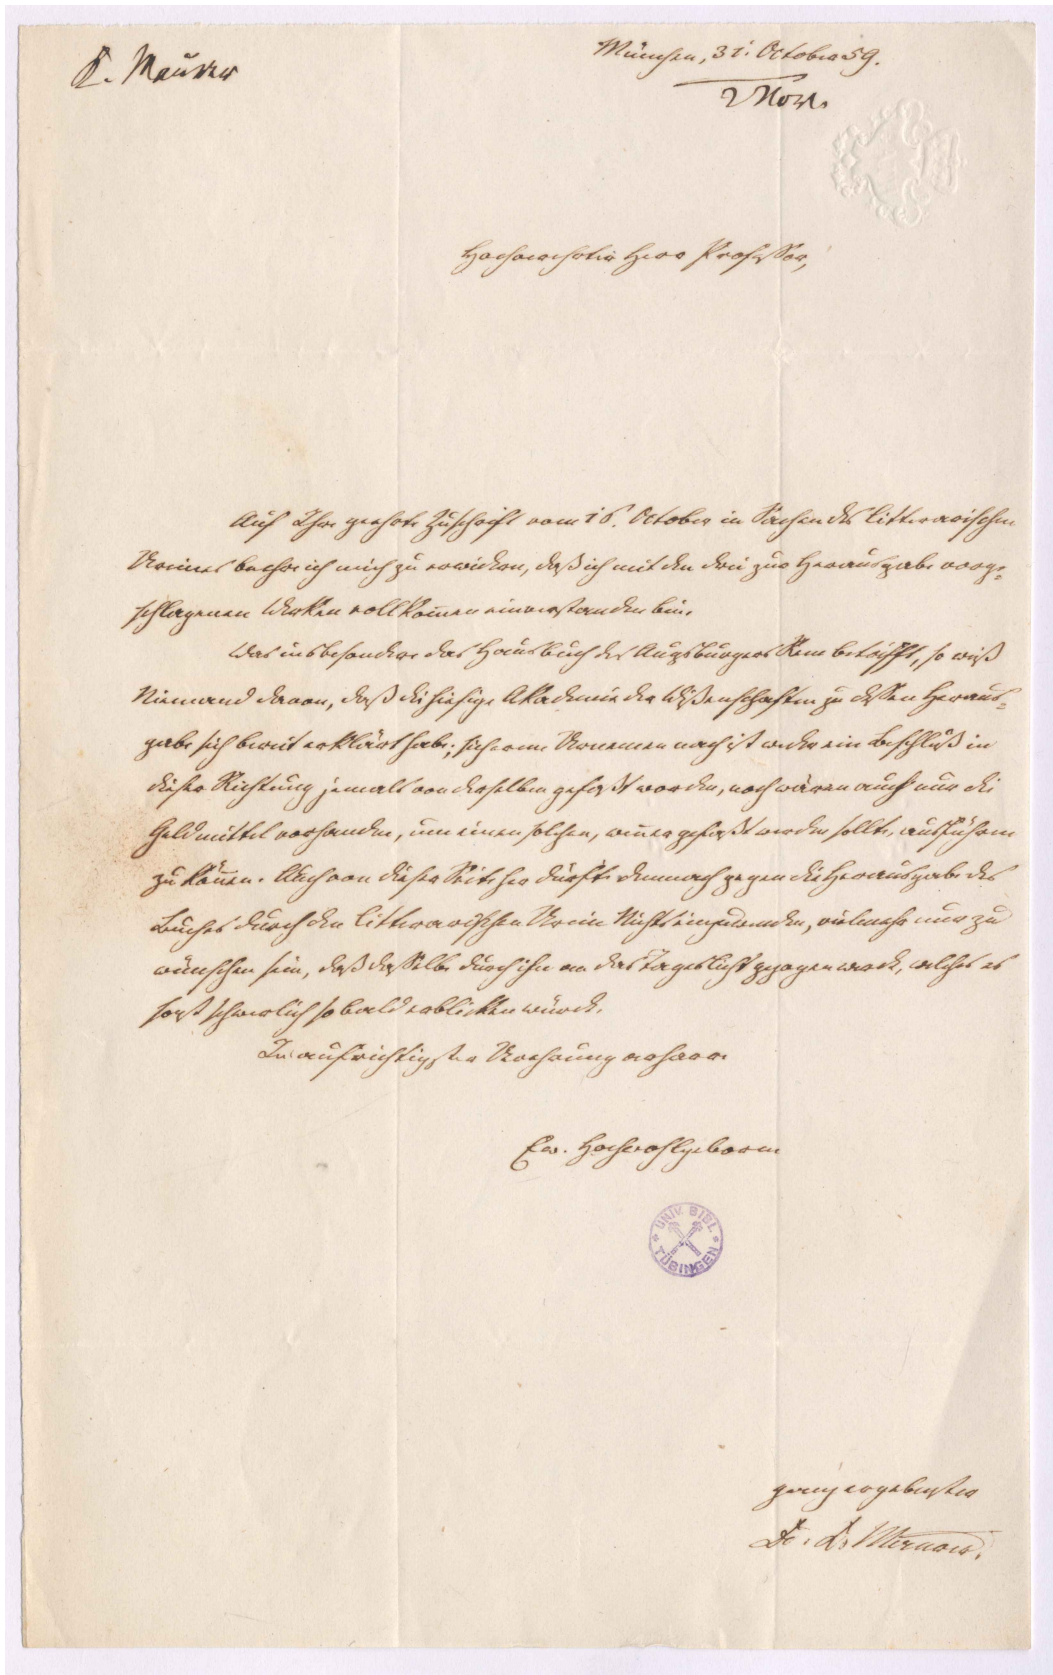 K. Maurer
München, 31. October 59.
2 Nov.
Hochverehrter Herr Professor,
Auf Ihre geehrte Zuschrift vom 16. October in Sachen des litterarischen
Vereines beehre ich mich zu erwidern, daß ich mit den drei zur Herausgabe vorge-
schlagenen Werken vollkom̅en einverstanden bin.
Was insbesondere das Hausbuch des Augsburgers Rem betrifft, so weiß
Niemand davon, daß die hiesige Akademie der Wißenschaften zu deßen Heraus-
gabe sich bereit erklärt habe; sicherem Vernemen nach ist weder ein Beschluß in
dieser Richtung jemals von derselben gefaßt worden, noch wären auch nur die
Geldmittel vorhanden, um einen solchen, wenn er gefaßt werden sollte, ausführen
zu kön̅en. Auch von dieser Seite her dürfte demnach gegen die Herausgabe des
Buches durch den litterarischen Verein Nichts einzuwenden, vielmehr nur zu
wünschen sein, daß daßelbe durch ihn an das Tageslicht gezogen werde, welches es
sonst schwerlich so bald erblicken würde.
In aufrichtigster Verehrung verharre
Ew. Hochwohlgeboren
UNIV. BIBL. TÜBINGEN
ganz ergebenster
Dr. K. Maurer.